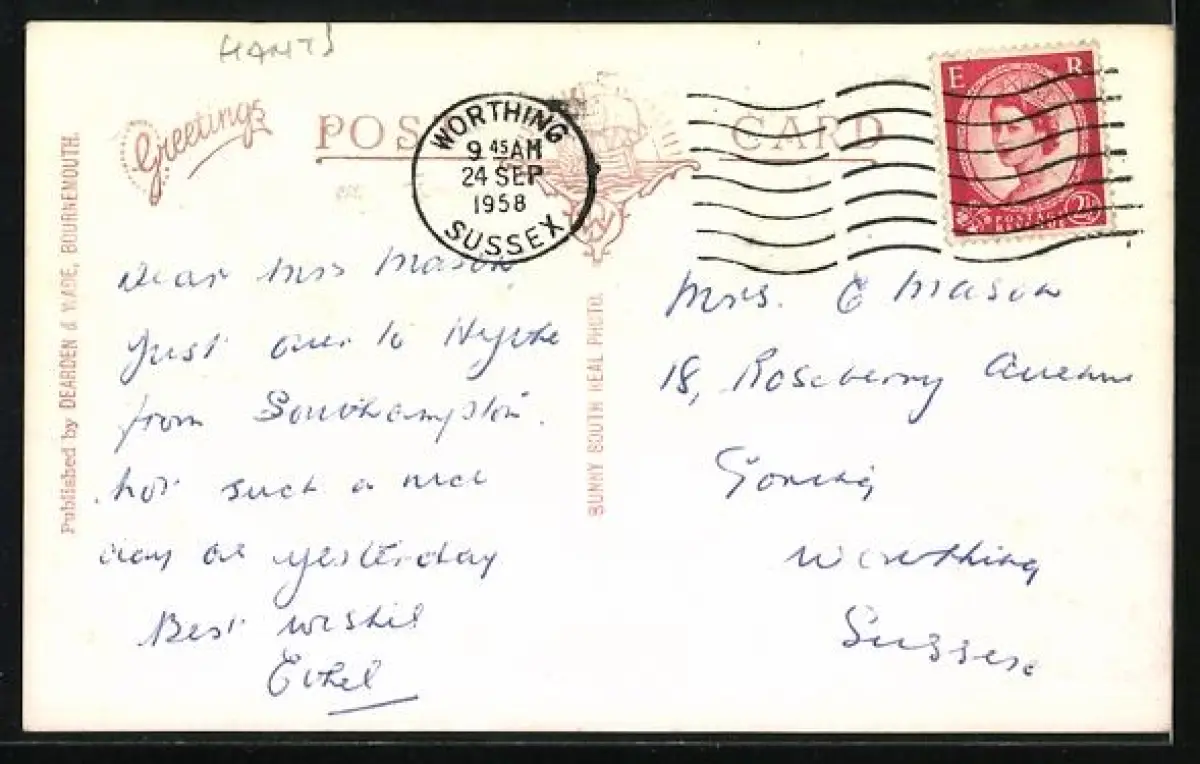 HANTS
Greetings
POST CARD
WORTHING
9 45 AM
24 SEP
1958
SUSSEX
E R
POSTAGE
REVENUE
2½
Published by DEARDEN & WADE, BOURNEMOUTH.
SUNNY SOUTH REAL PHOTO.
Dear Mrs Mason
Just over to Hythe
from Southampton.
not such a nice
day as yesterday
Best wishes
Ethel
Mrs. E Mason
18, Roseberry Avenue
Goring
Worthing
Sussex